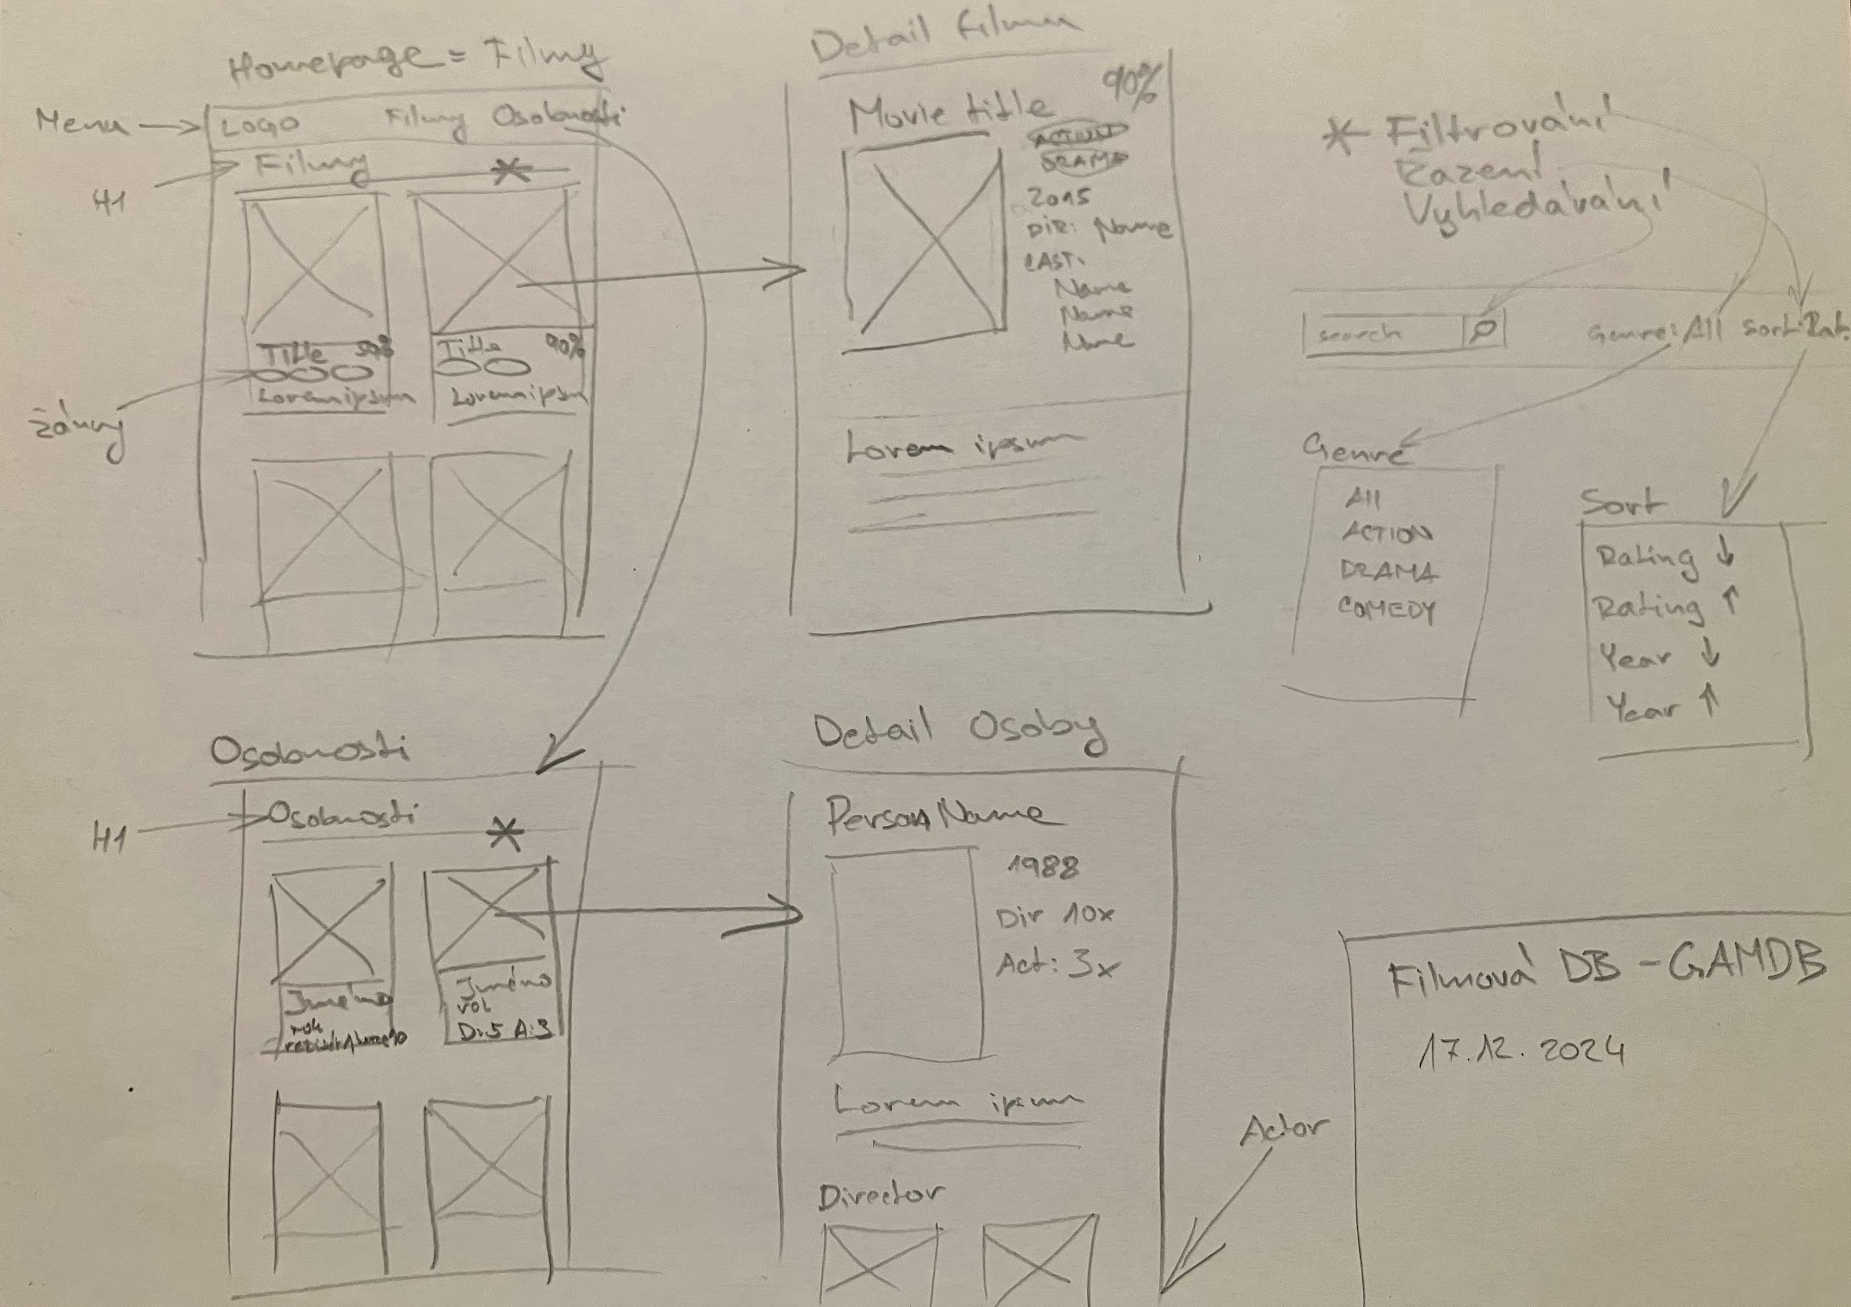 Homepage = Filmy
Menu
LOGO Filmy Osobnosti
Filmy
H1
Title 50%
Lorem ipsum
Title 90%
Lorem ipsum
žánry
Detail filmu
Movie title 90%
ACTION
DRAMA
2015
DIR: Name
CAST:
Name
Name
Name
Lorem ipsum
* Filtrování
Řazení
Vyhledávání
search
Genre: All Sort: Rat.
Genre
All
ACTION
DRAMA
COMEDY
Sort
Rating ↓
Rating ↑
Year ↓
Year ↑
Osobnosti
Osobnosti
H1
Jméno
rok
Jméno
rok
D:5 A:3
Detail Osoby
Person Name
1988
Dir 10x
Act: 3x
Lorem ipsum
Director
Actor
Filmová DB - GAMDB
17.12.2024